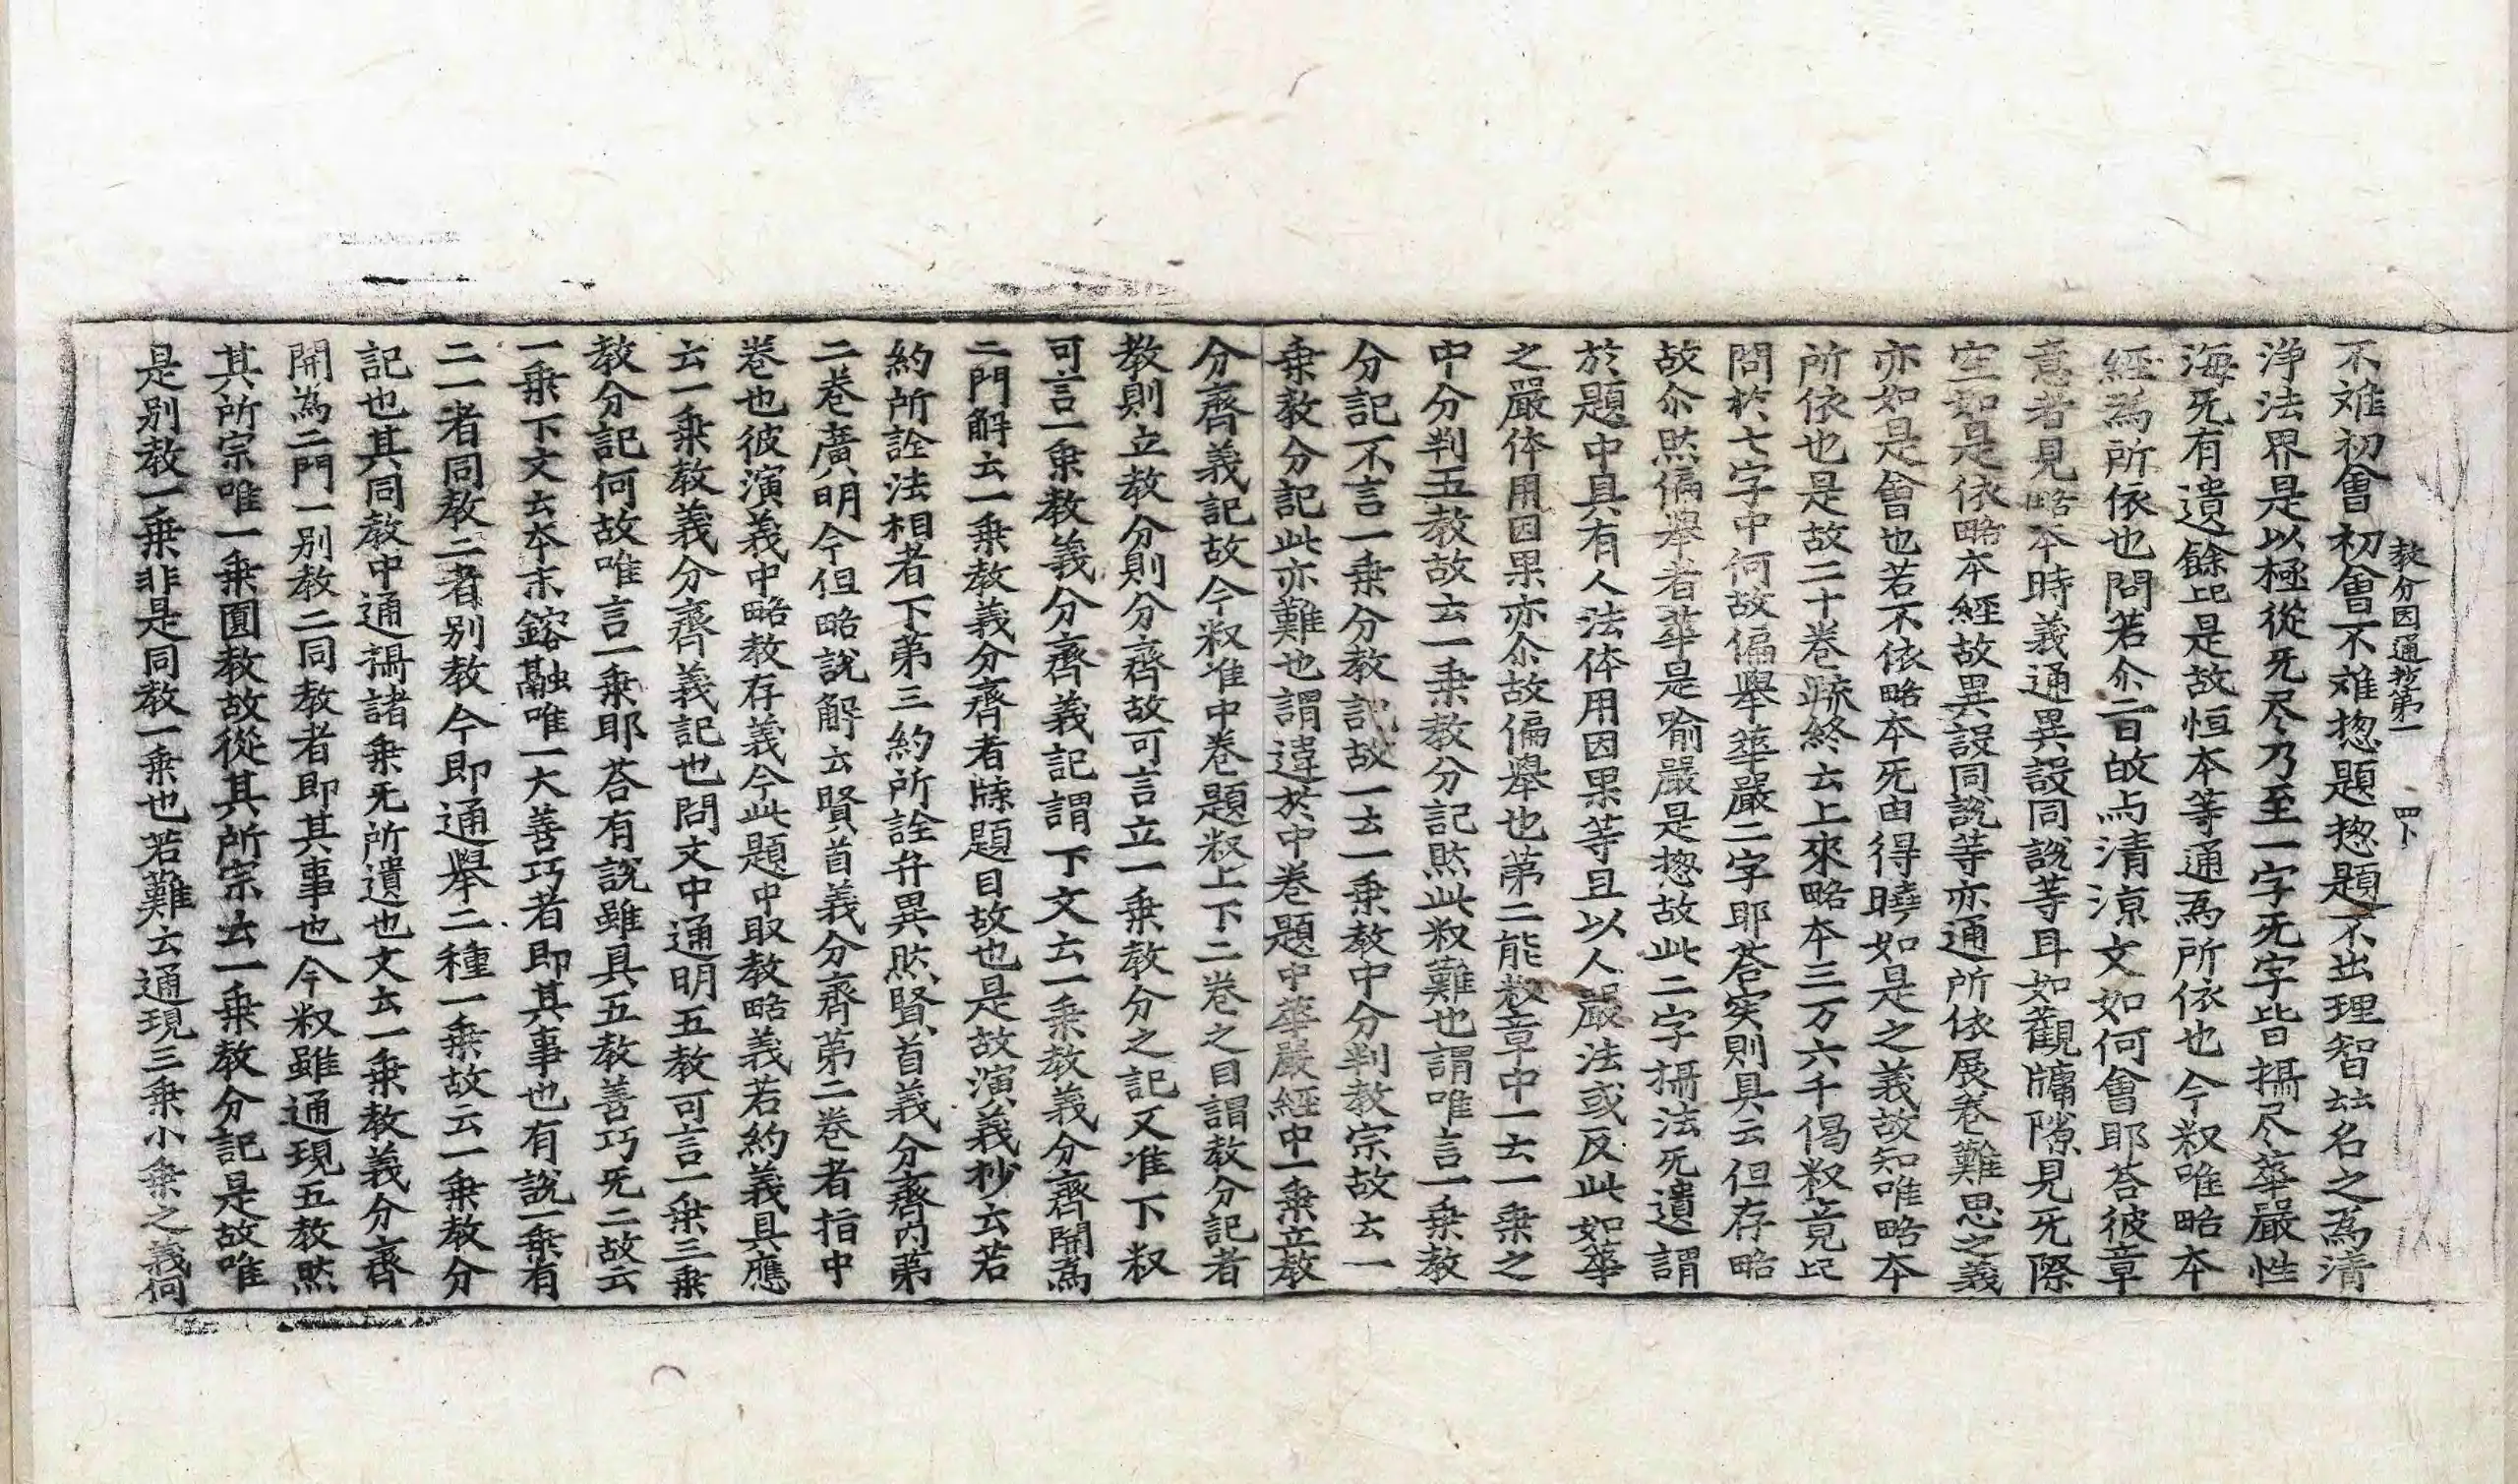 教分因通抄第一 四下
不难初會初會不难惣題惣題不出理智故名之為清
浄法界是以極從旡尽乃至一字旡字皆攝尽華嚴性
海旡有遺餘此是故恒本等通為所依也今叙唯略本
經為所依也問若尒二百故与清涼文如何會耶荅彼章
意者見略本時義通異設同說等耳如觀牗隙見旡際
空如是依略本經故異設同說等亦通所依展卷難思之義
亦如是會也若不依略本旡由得曉如是之義故知唯略本
所依也是故二十卷䟽終云上來略本三万六千偈叙竟此
問於七字中何故偏舉華嚴二字耶荅実則具云但存略
故尒然偏舉者華是喻嚴是惣故此二字攝法旡遺謂
於題中具有人法体用因果等且以人嚴法或反此如華
之嚴体用因果亦尒故偏舉也苐二能叙章中一云一乗之
中分判五教故云一乗教分記然此叙難也謂唯言一乗教
分記不言一乗分教記故一云一乗教中分判教宗故云一
乗教分記此亦難也謂違於中卷題中華嚴經中一乗立教
分齊義記故今叙准中卷題叙上下二卷之目謂教分記者
教則立教分則分齊故可言立一乗教分之記又准下叙
可言一乗教義分齊義記謂下文云一乗教義分齊開為
二門解云一乗教義分齊者牒題目故也是故演義抄云若
約所詮法相者下苐三約所詮弁異然賢首義分齊內苐
二卷廣明今但略說解云賢首義分齊苐二卷者指中
卷也彼演義中略教存義今此題中取教略義若約義具應
云一乗教義分齊義記也問文中通明五教可言一乗三乗
教分記何故唯言一乗耶荅有說雖具五教善巧旡二故云
一乗下文云夲末鎔融唯一大善巧者即其事也有說一乗有
二一者同教二者別教今即通舉二種一乗故云一乗教分
記也其同教中通攝諸乗旡所遺也文云一乗教義分齊
開為二門一別教二同教者即其事也今叙雖通現五教然
其所宗唯一乗圓教故從其所宗云一乗教分記是故唯
是别教一乗非是同教一乗也若難云通現三乗小乗之義何